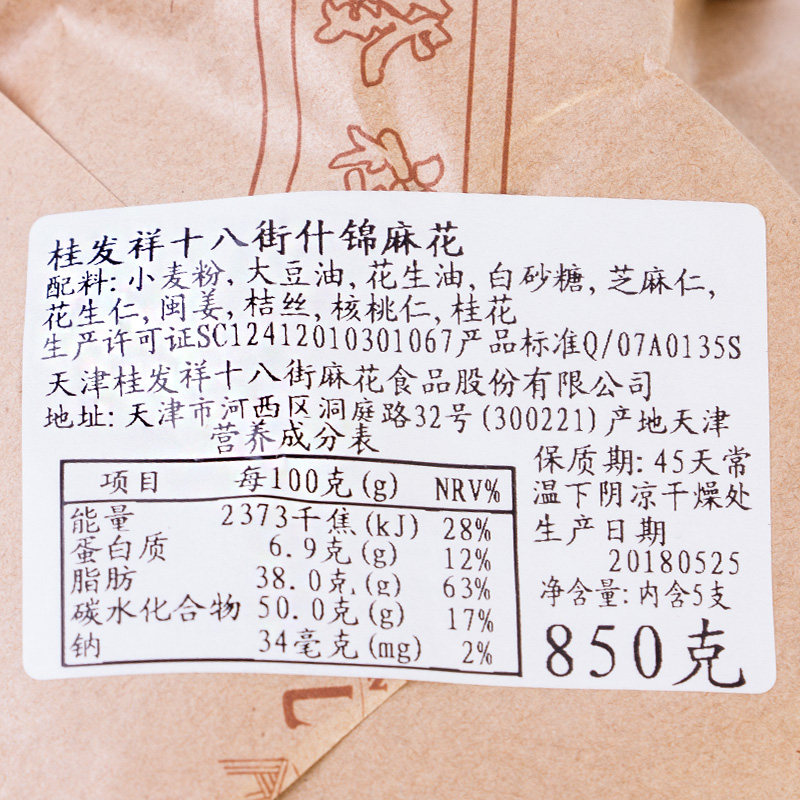 桂发祥十八街什锦麻花
配料: 小麦粉, 大豆油, 花生油, 白砂糖, 芝麻仁,
花生仁, 闽姜, 桔丝, 核桃仁, 桂花
生产许可证SC12412010301067产品标准Q/07A0135S
天津桂发祥十八街麻花食品股份有限公司
地址: 天津市河西区洞庭路32号(300221)产地天津
营养成分表
项目 每100克(g) NRV%
能量 2373千焦(kJ) 28%
蛋白质 6.9克(g) 12%
脂肪 38.0克(g) 63%
碳水化合物 50.0克(g) 17%
钠 34毫克(mg) 2%
保质期: 45天常
温下阴凉干燥处
生产日期
20180525
净含量: 内含5支
850克